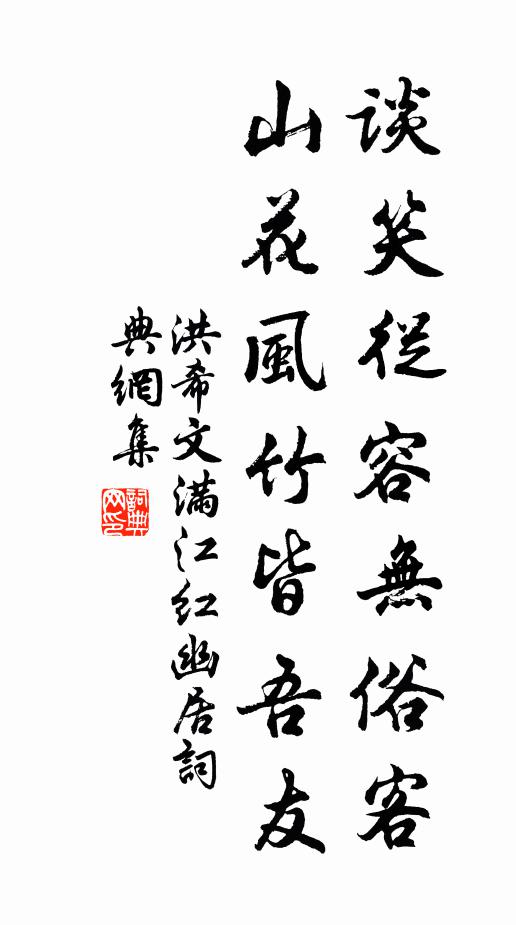 談笑從容無俗客
山花風竹皆吾友
洪希文满江红幽居詞
典網集
詞典
网印